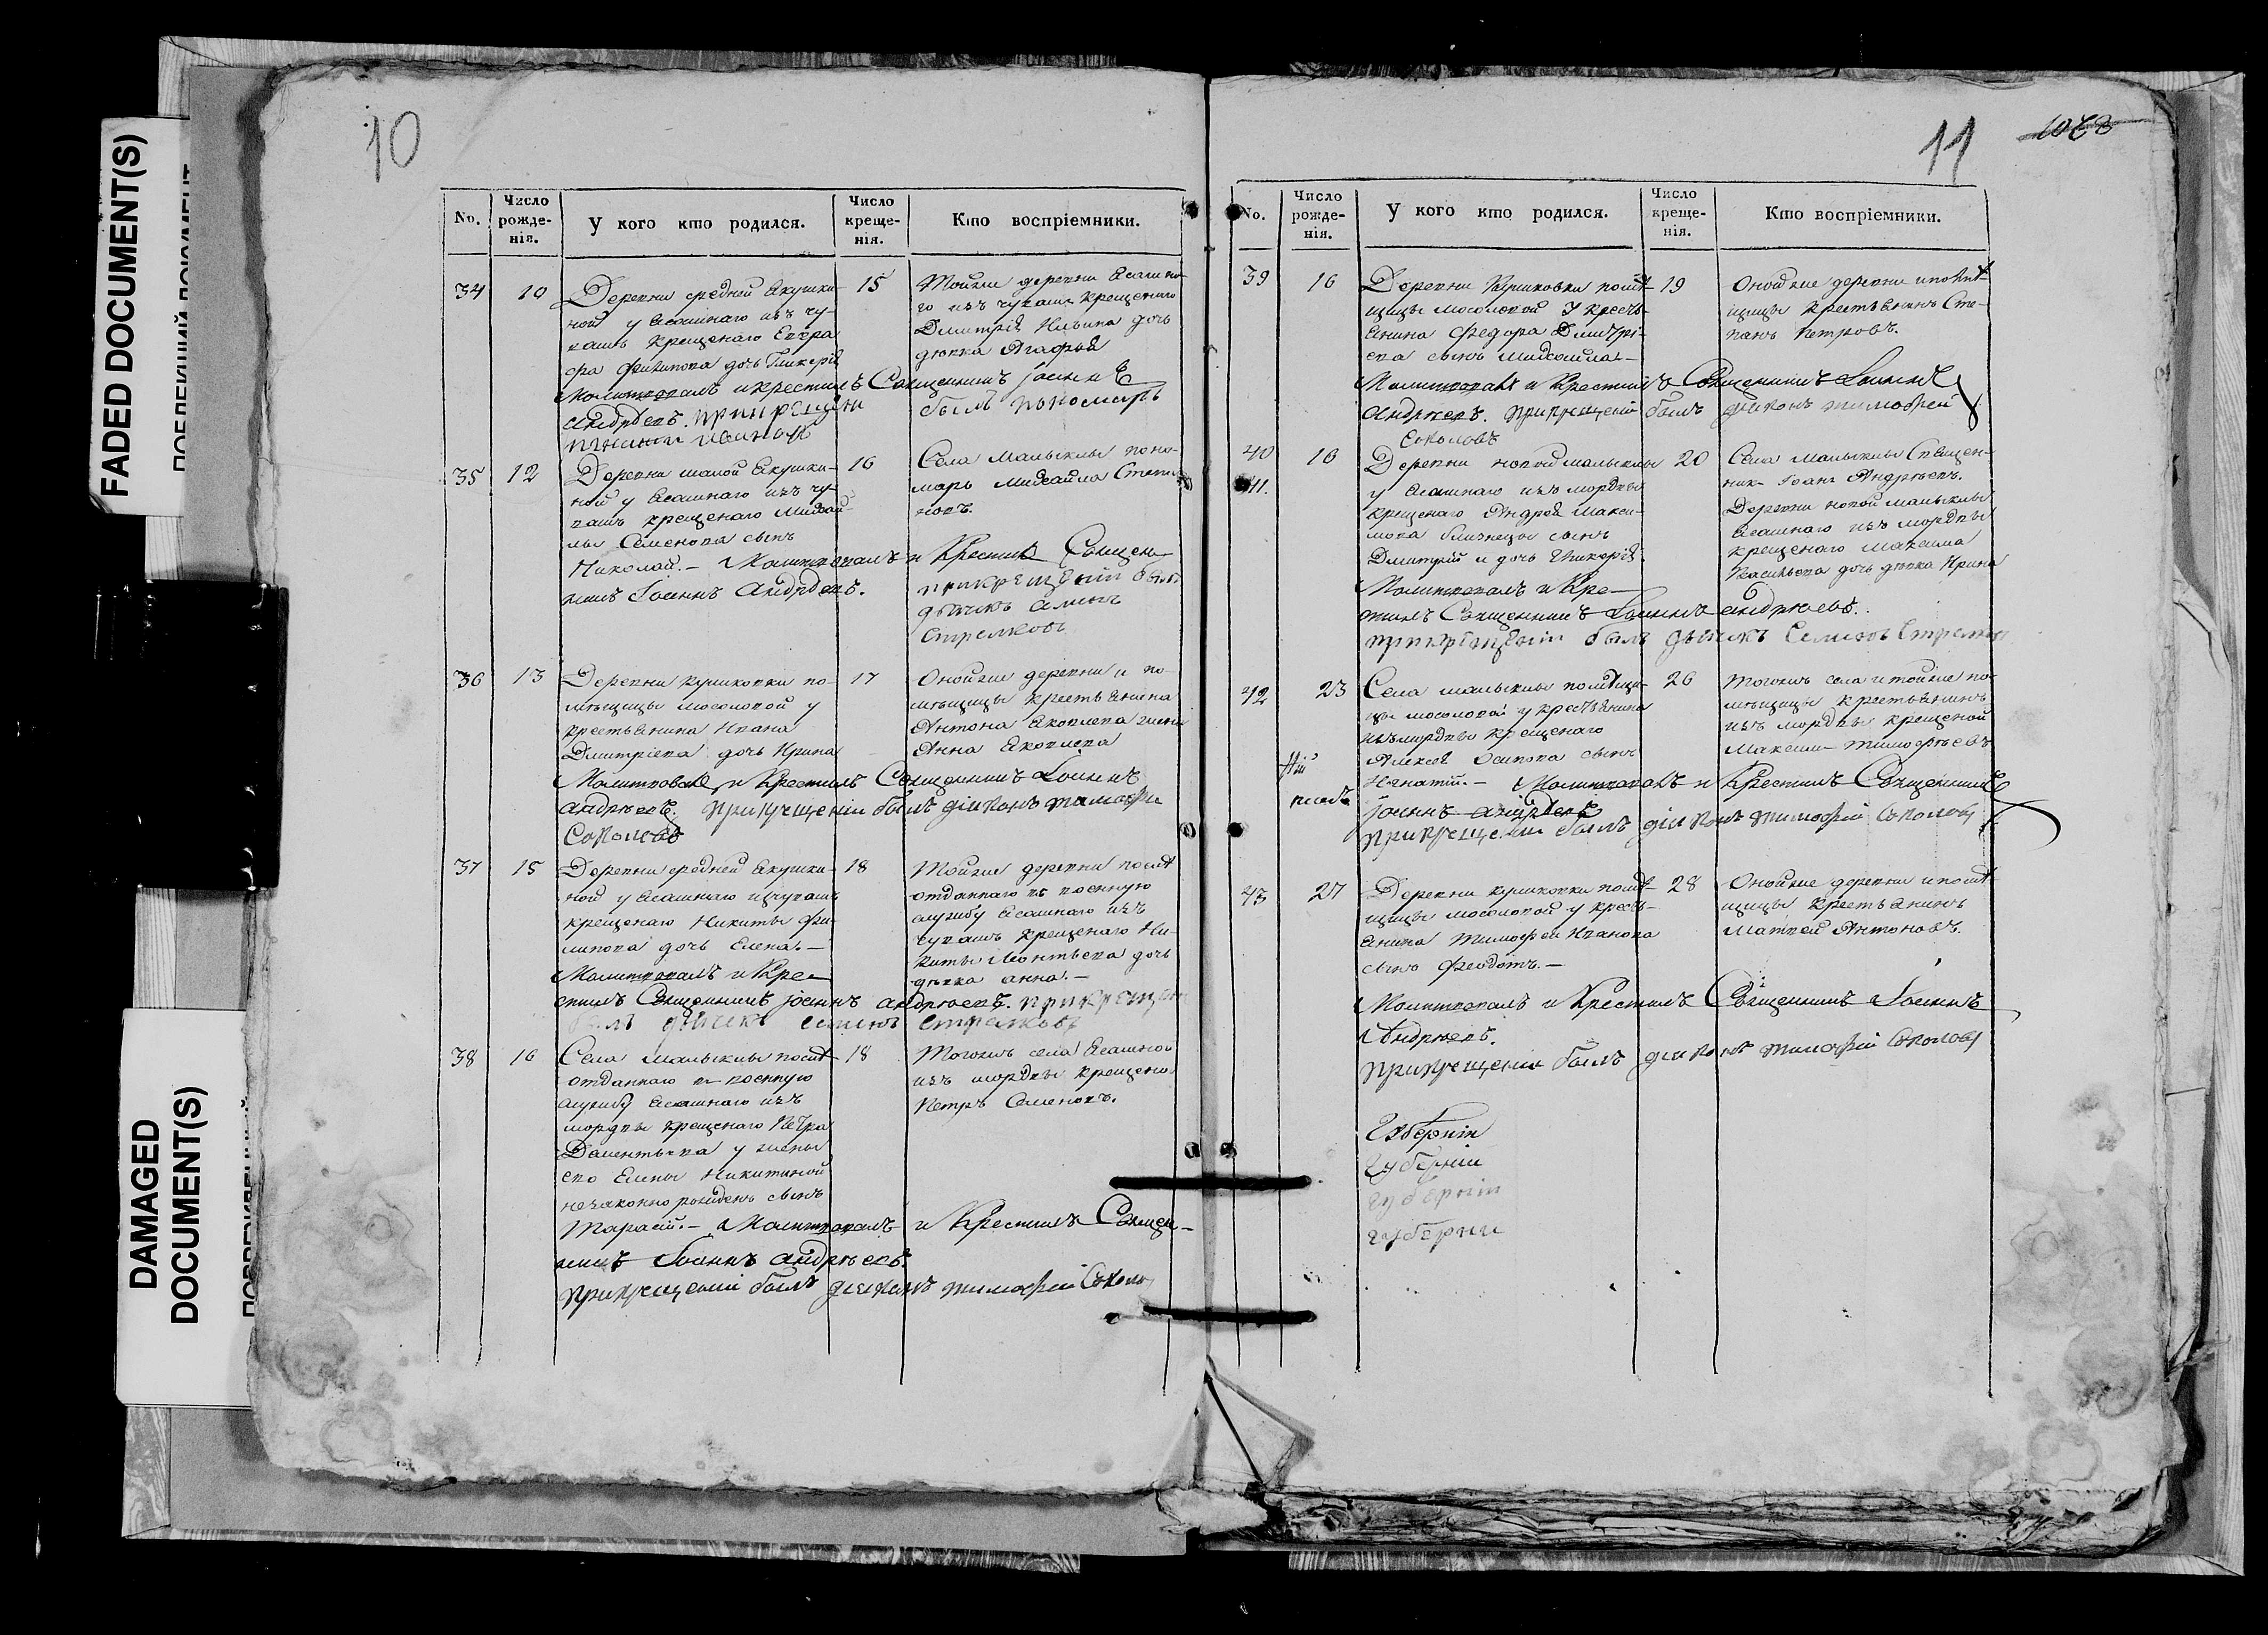 FADED DOCUMENT(S)
DAMAGED
DOCUMENT(S)
10
No.
Число рожденія.
У кого кто родился.
Число крещенія.
Кто воспріемники.
34
10
Деревни средней Якушки-
ной у Ясашнаго изъ чу-
вашъ крещенаго Евгра-
фа Филипова дочь Гликерія
Молитвовалъ и крестилъ Священникъ Іоаннъ
Андреевъ.
былъ пономарь
15
Тойже деревни Ясашна-
го изъ чувашъ крещенаго
Дмитрія Ильина дочь
девка Агафья
35
12
Деревни малой Якушки-
ной у Ясашнаго изъ чу-
вашъ крещенаго Михай-
лы Семенова сынъ
Николай. – Молитвовалъ и Крестилъ Священ-
никъ Іоаннъ Андреевъ.
16
Села Малыклы поно-
марь Михайла Степа-
новъ.
при крещеніи былъ
дьячекъ Семенъ
Стрелковъ
36
13
Деревни Кушковки по-
мѣщицы Мосоловой у
крестьянина Ивана
Дмитріева дочь Ирина
Молитвовалъ и Крестилъ Священникъ Іоаннъ
Андрѣевъ. при крещеніи былъ діаконъ Тимофей
Соколовъ
17
Онойже деревни и по-
мѣщицы крестьянина
Антона Яковлева жена
Анна Яковлева
37
15
Деревни средней Якушки-
ной у Ясашнаго изъ чувашъ
крещенаго Никиты Фи-
липова дочь Елена. –
Молитвовалъ и Кре-
стилъ Священникъ Іоаннъ Андрѣевъ. при крещен
былъ дьячекъ Семенъ Стрелковъ
18
Тойже деревни
отданнаго въ военную
службу Ясашнаго изъ
чувашъ крещенаго Ни-
киты Леонтьева дочь
девка Анна. –
38
16
Села Малыклы
отданнаго въ военную
службу Ясашнаго изъ
мордвы крещенаго Петра
Дементьева у жены
его Елены Никитиной
незаконно рожденъ сынъ
Тарасій. – Молитвовалъ и Крестилъ Священ-
никъ Іоаннъ Андрѣевъ.
при крещеніи былъ діаконъ Тимофей Соколо
18
Тогожъ села Ясашной
изъ мордвы крещеной
Петръ Семеновъ.
11
No.
Число рожденія.
У кого кто родился.
Число крещенія.
Кто воспріемники.
39
16
Деревни Кушковки помѣ-
щицы Мосоловой у кресть-
янина Федора Дмитрі-
ева сынъ Михайла. –
Молитвовалъ и Крестилъ Священникъ Іоаннъ
Андрѣевъ. при крещеніи былъ діаконъ Тимофей
Соколовъ
19
Онойже деревни и помѣ-
щицы Крестьянинъ Сте-
панъ Петровъ.
40
41.
16
Деревни новой Малыклы
у Ясашнаго изъ мордвы
крещенаго Андрея Макси-
мова близнецы сынъ
Дмитрій и дочь Гликерія.
Молитвовалъ и Кре-
стилъ Священникъ Іоаннъ Андрѣевъ.
при крещеніи былъ дьячекъ Семенъ Стрелков
20
Села Малыклы Священ-
никъ Іоанъ Андрѣевъ.
Деревни новой Малыклы
Ясашнаго изъ мордвы
крещенаго Максима
Васильева дочь девка Ирина
42
23
Села Малыклы помѣщи-
цы Мосоловой у крестьянина
изъ мордвы крещенаго
Алексея Осипова сынъ
Игнатій. – Молитвовалъ и Крестилъ Священникъ
Іоаннъ Андреевъ
при крещеніи былъ діаконъ Тимофей Соколовъ
26
Тогожъ села и тойже по-
мѣщицы крестьянинъ
изъ мордвы крещеной
Максимъ Тимофѣевъ
43
27
Деревни Кушковки помѣ-
щицы Мосоловой у кресть-
янина Тимофея Иванова
сынъ Феодотъ. –
Молитвовалъ и Крестилъ Священникъ Іоаннъ
Андрѣевъ.
при крещеніи былъ діаконъ Тимофей Соколовъ
28
Онойже деревни и помѣ-
щицы Крестьянинъ
Матвей Антоновъ.
Губерніи
Губерніи
губерніи
губерніи